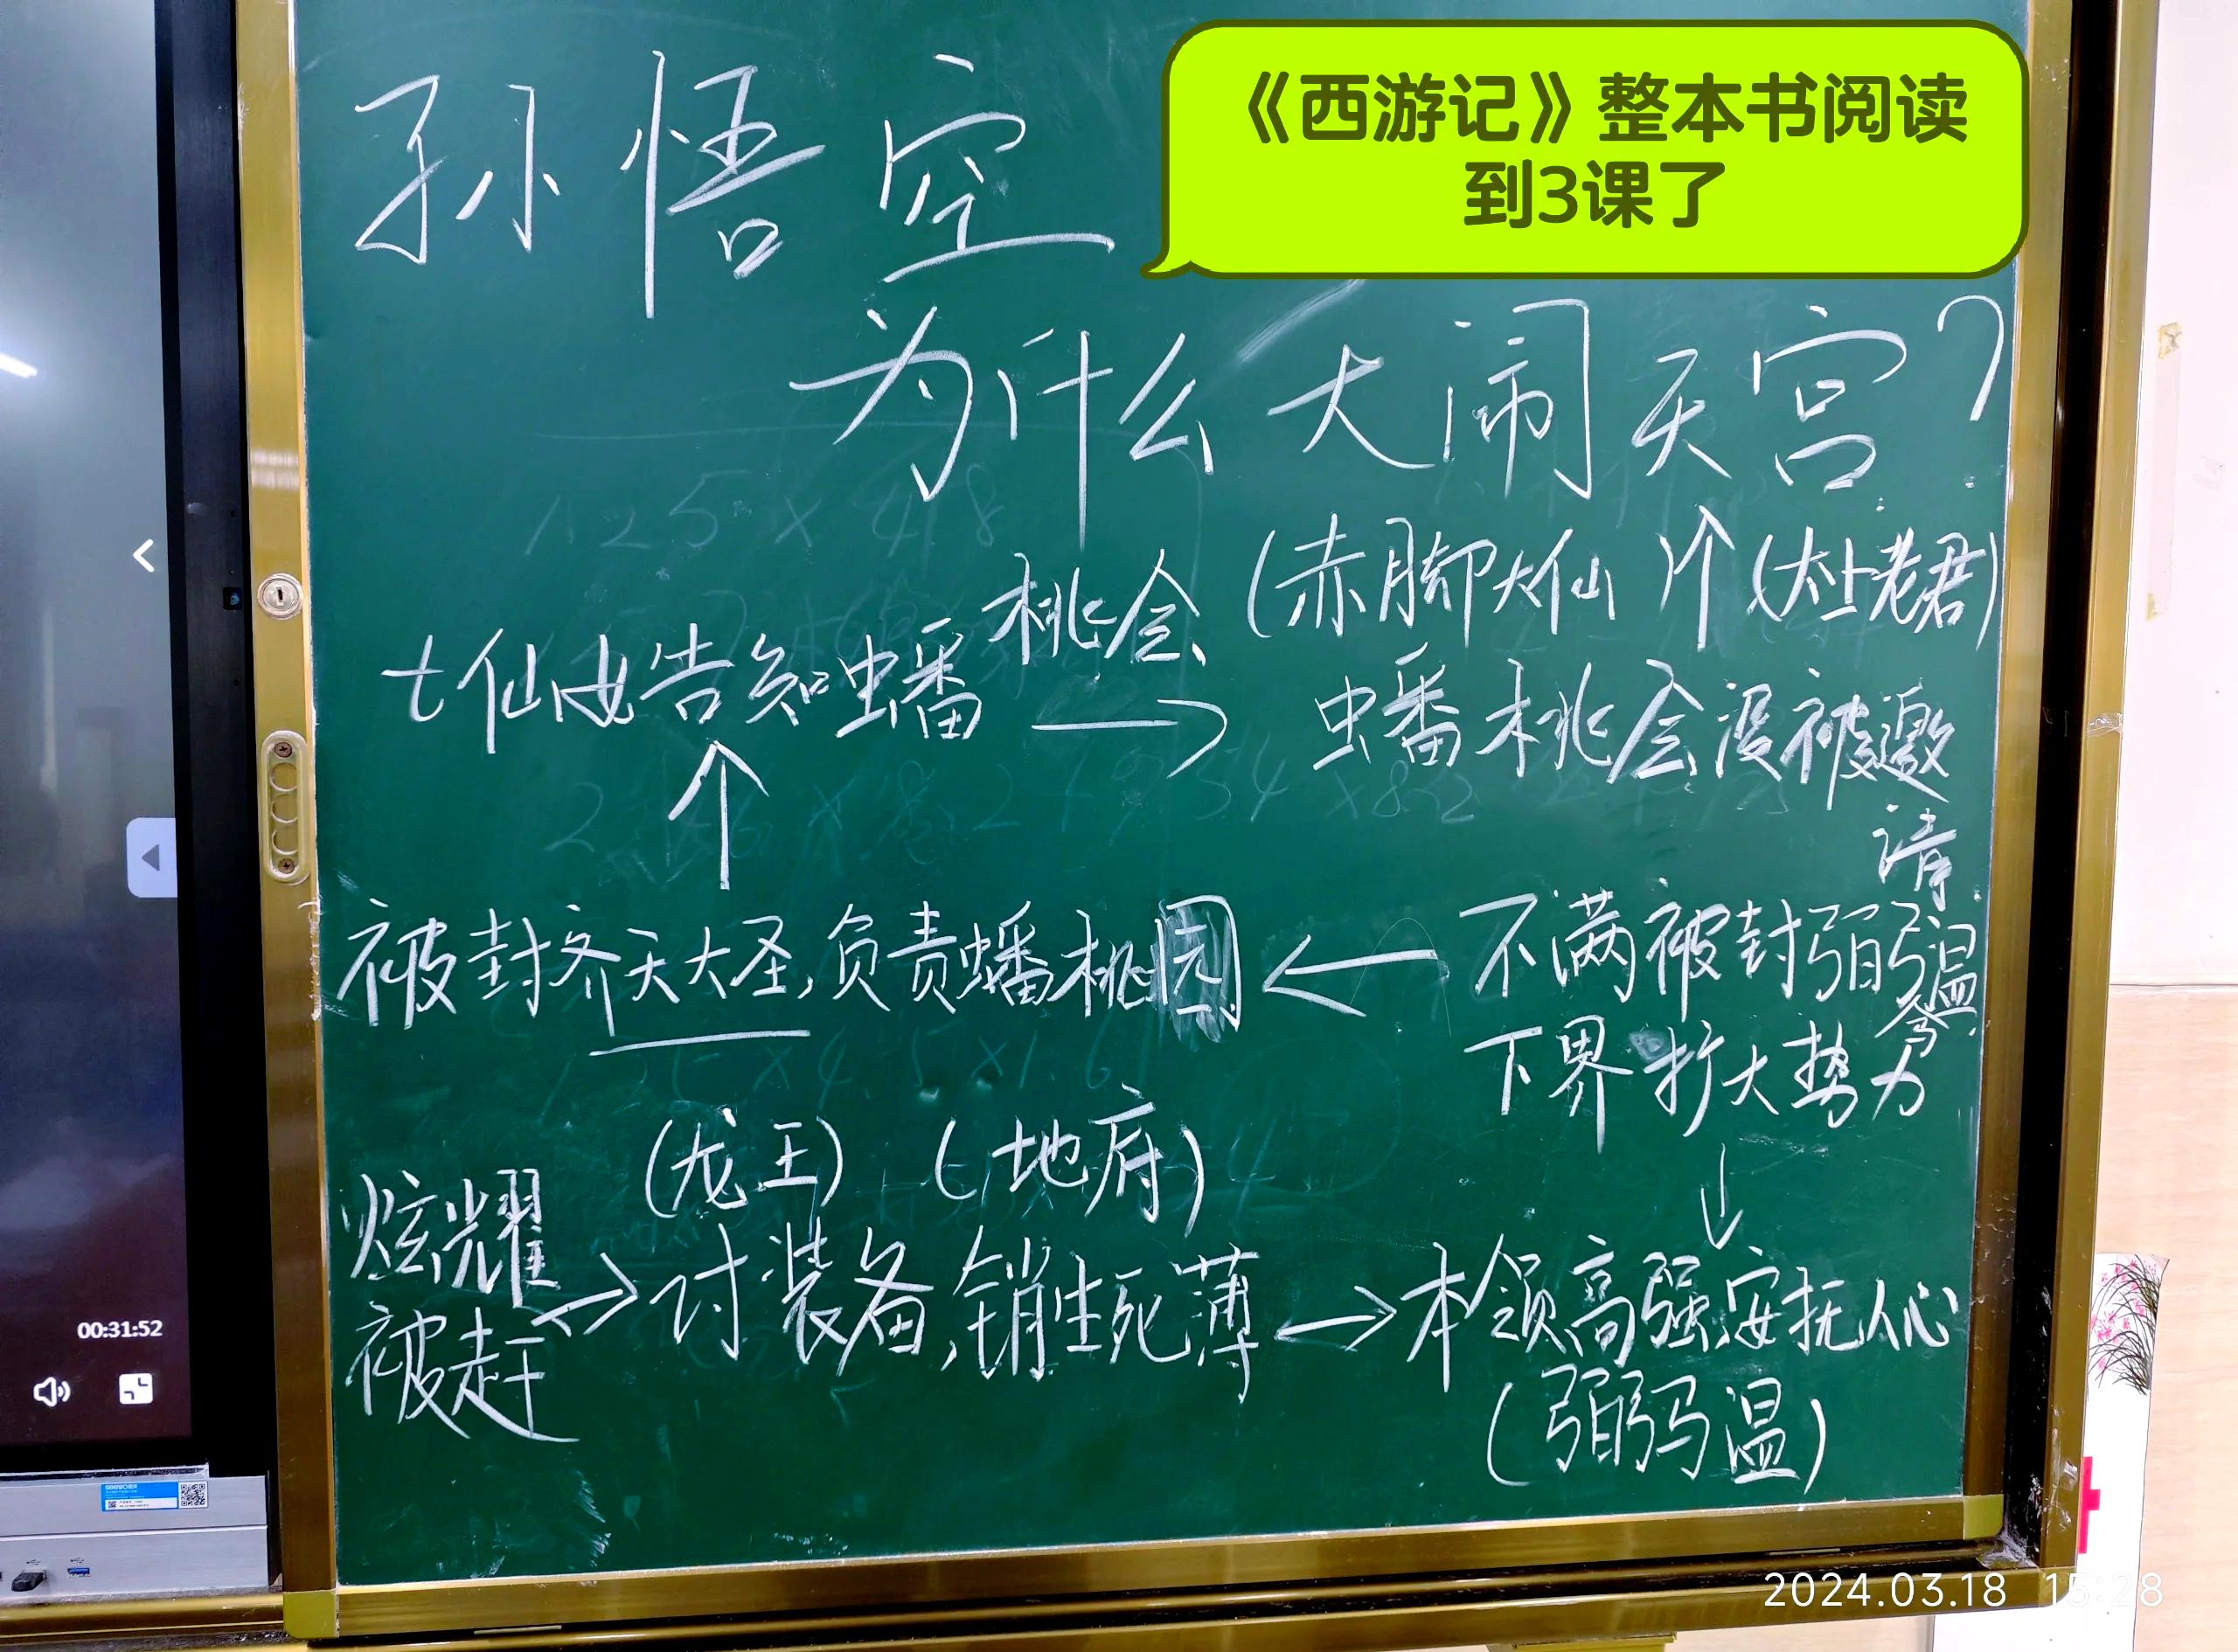 《西游记》整本书阅读
到3课了
孙悟空
为什么大闹天宫?
(赤脚大仙) (太上老君)
七仙女告知蟠桃会
蟠桃会没被邀请
被封齐天大圣,负责蟠桃园
不满被封弼马温
下界扩大势力
(龙王) (地府)
炫耀
被赶
讨装备,销生死薄
本领高强,安抚人心
(弼马温)
00:31:52
2024.03.18 15:28